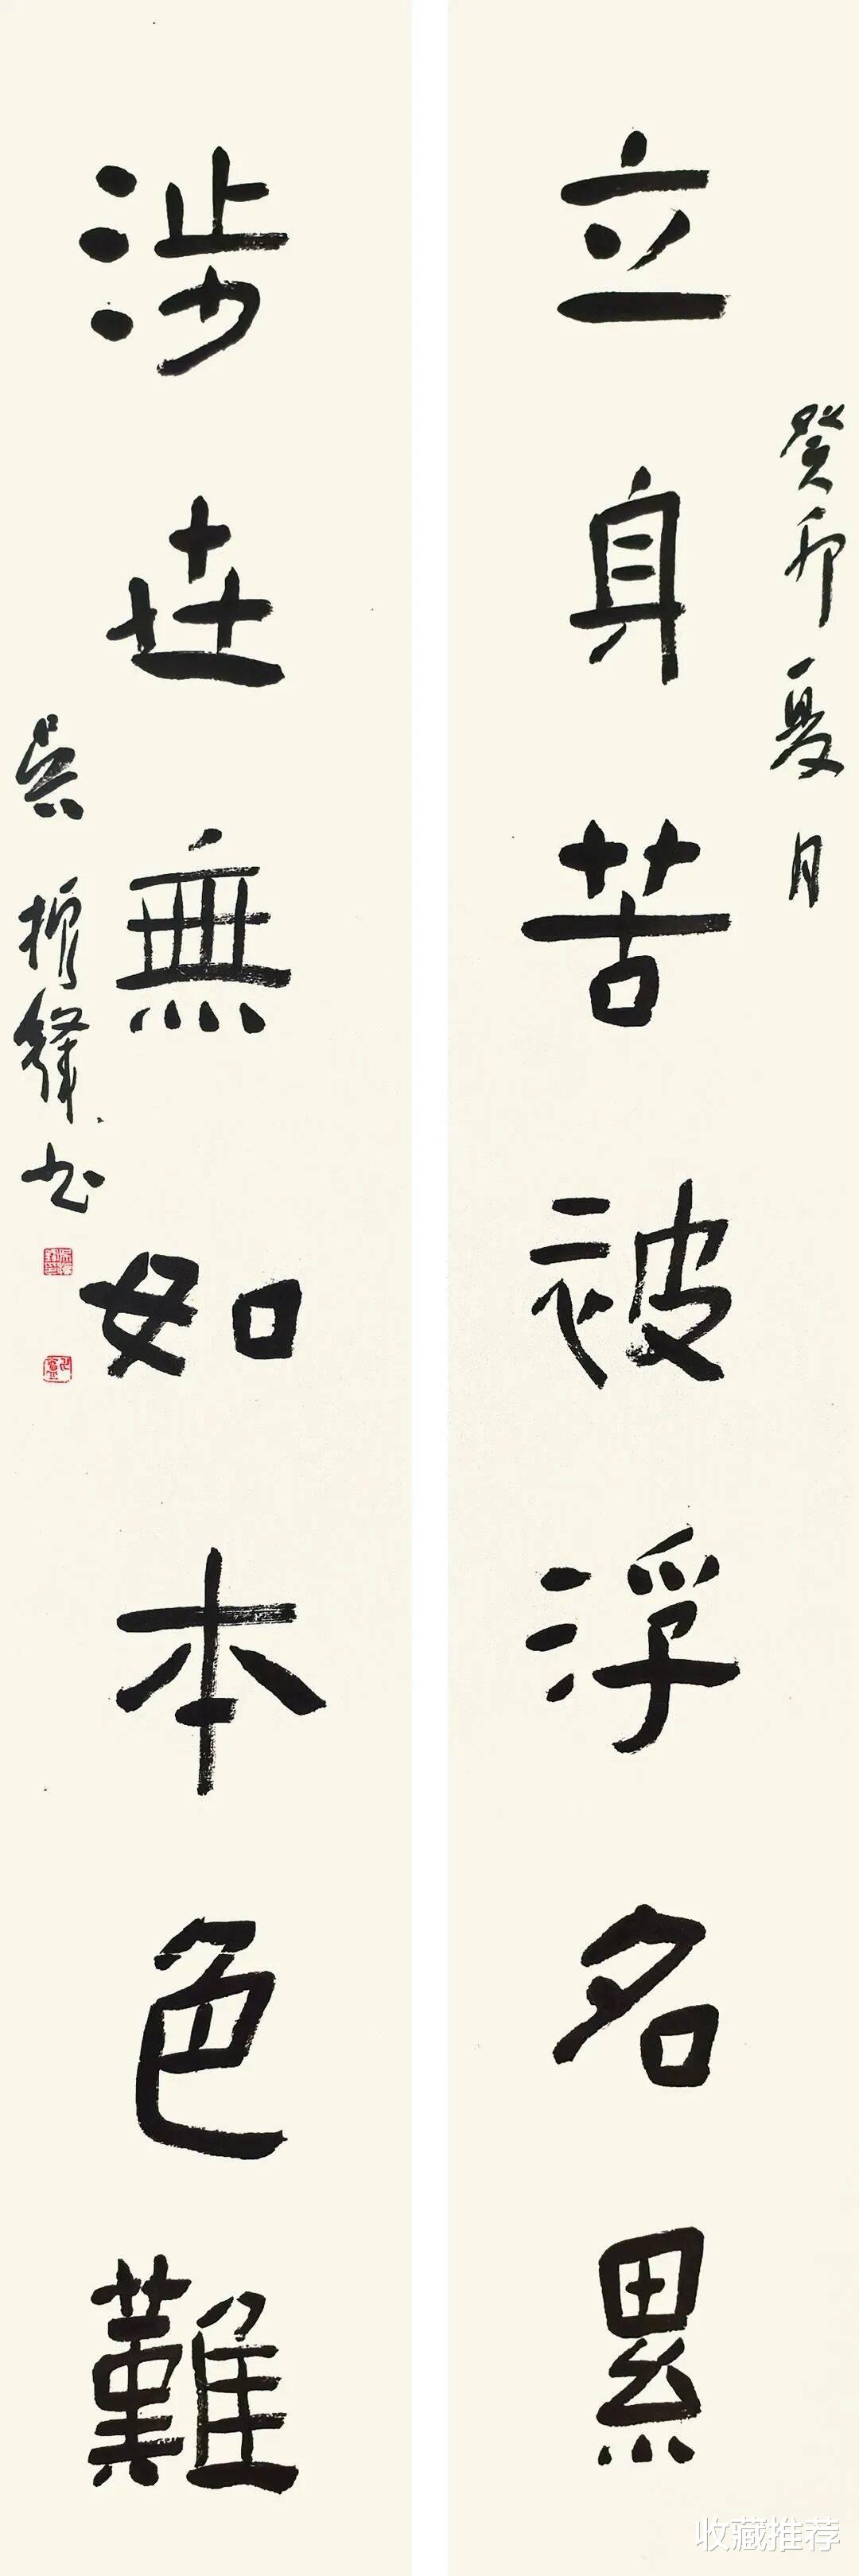 癸卯夏月
立身苦被浮名累
涉世無如本色難
吴振锋书
收藏推荐